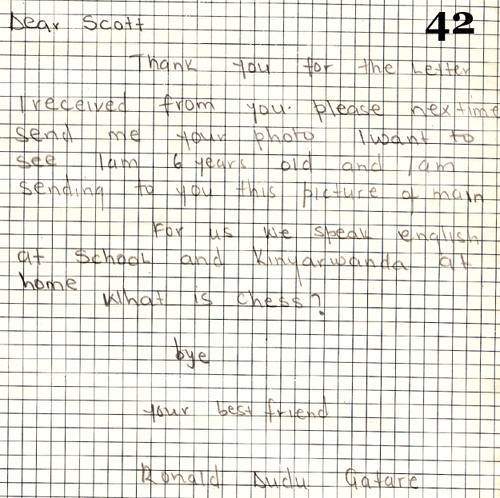 Dear Scott
42
Thank you for the Letter
I received from you. please nextime
send me your photo I want to
see I am 6 years old and I am
sending to you this picture of main
For us we speak english
at School and Kinyarwanda at
home What is chess?
bye
your best friend
Ronald Dudu Gatare